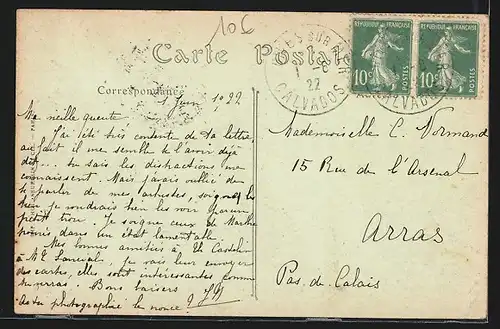 106
Carte Postale
Correspondance
RÉPUBLIQUE FRANÇAISE
10c POSTES
RÉPUBLIQUE FRANÇAISE
10c POSTES
SUR
1 -6
22
CALVADOS
CALVADOS
1 Juin 1922
Ma vieille
J'ai été très contente de ta lettre
au fait il me semble te l'avoir déjà
dit... tu sais les distractions me
connaissent. Mais j'avais oublié de
te parler de mes arbustes, soignez les
bien je voudrais bien les voir
petit trou. Je soigne ceux de Marthe
dans un état lamentable.
Mes bonnes amitiés à
à Me je vais leur envoyer
des cartes, elles sont intéressantes comme
tu verras. Bons baisers
As-tu photographié la noce ?
Mademoiselle C. Normand
15 Rue de l'Arsenal
Arras
Pas. de. Calais